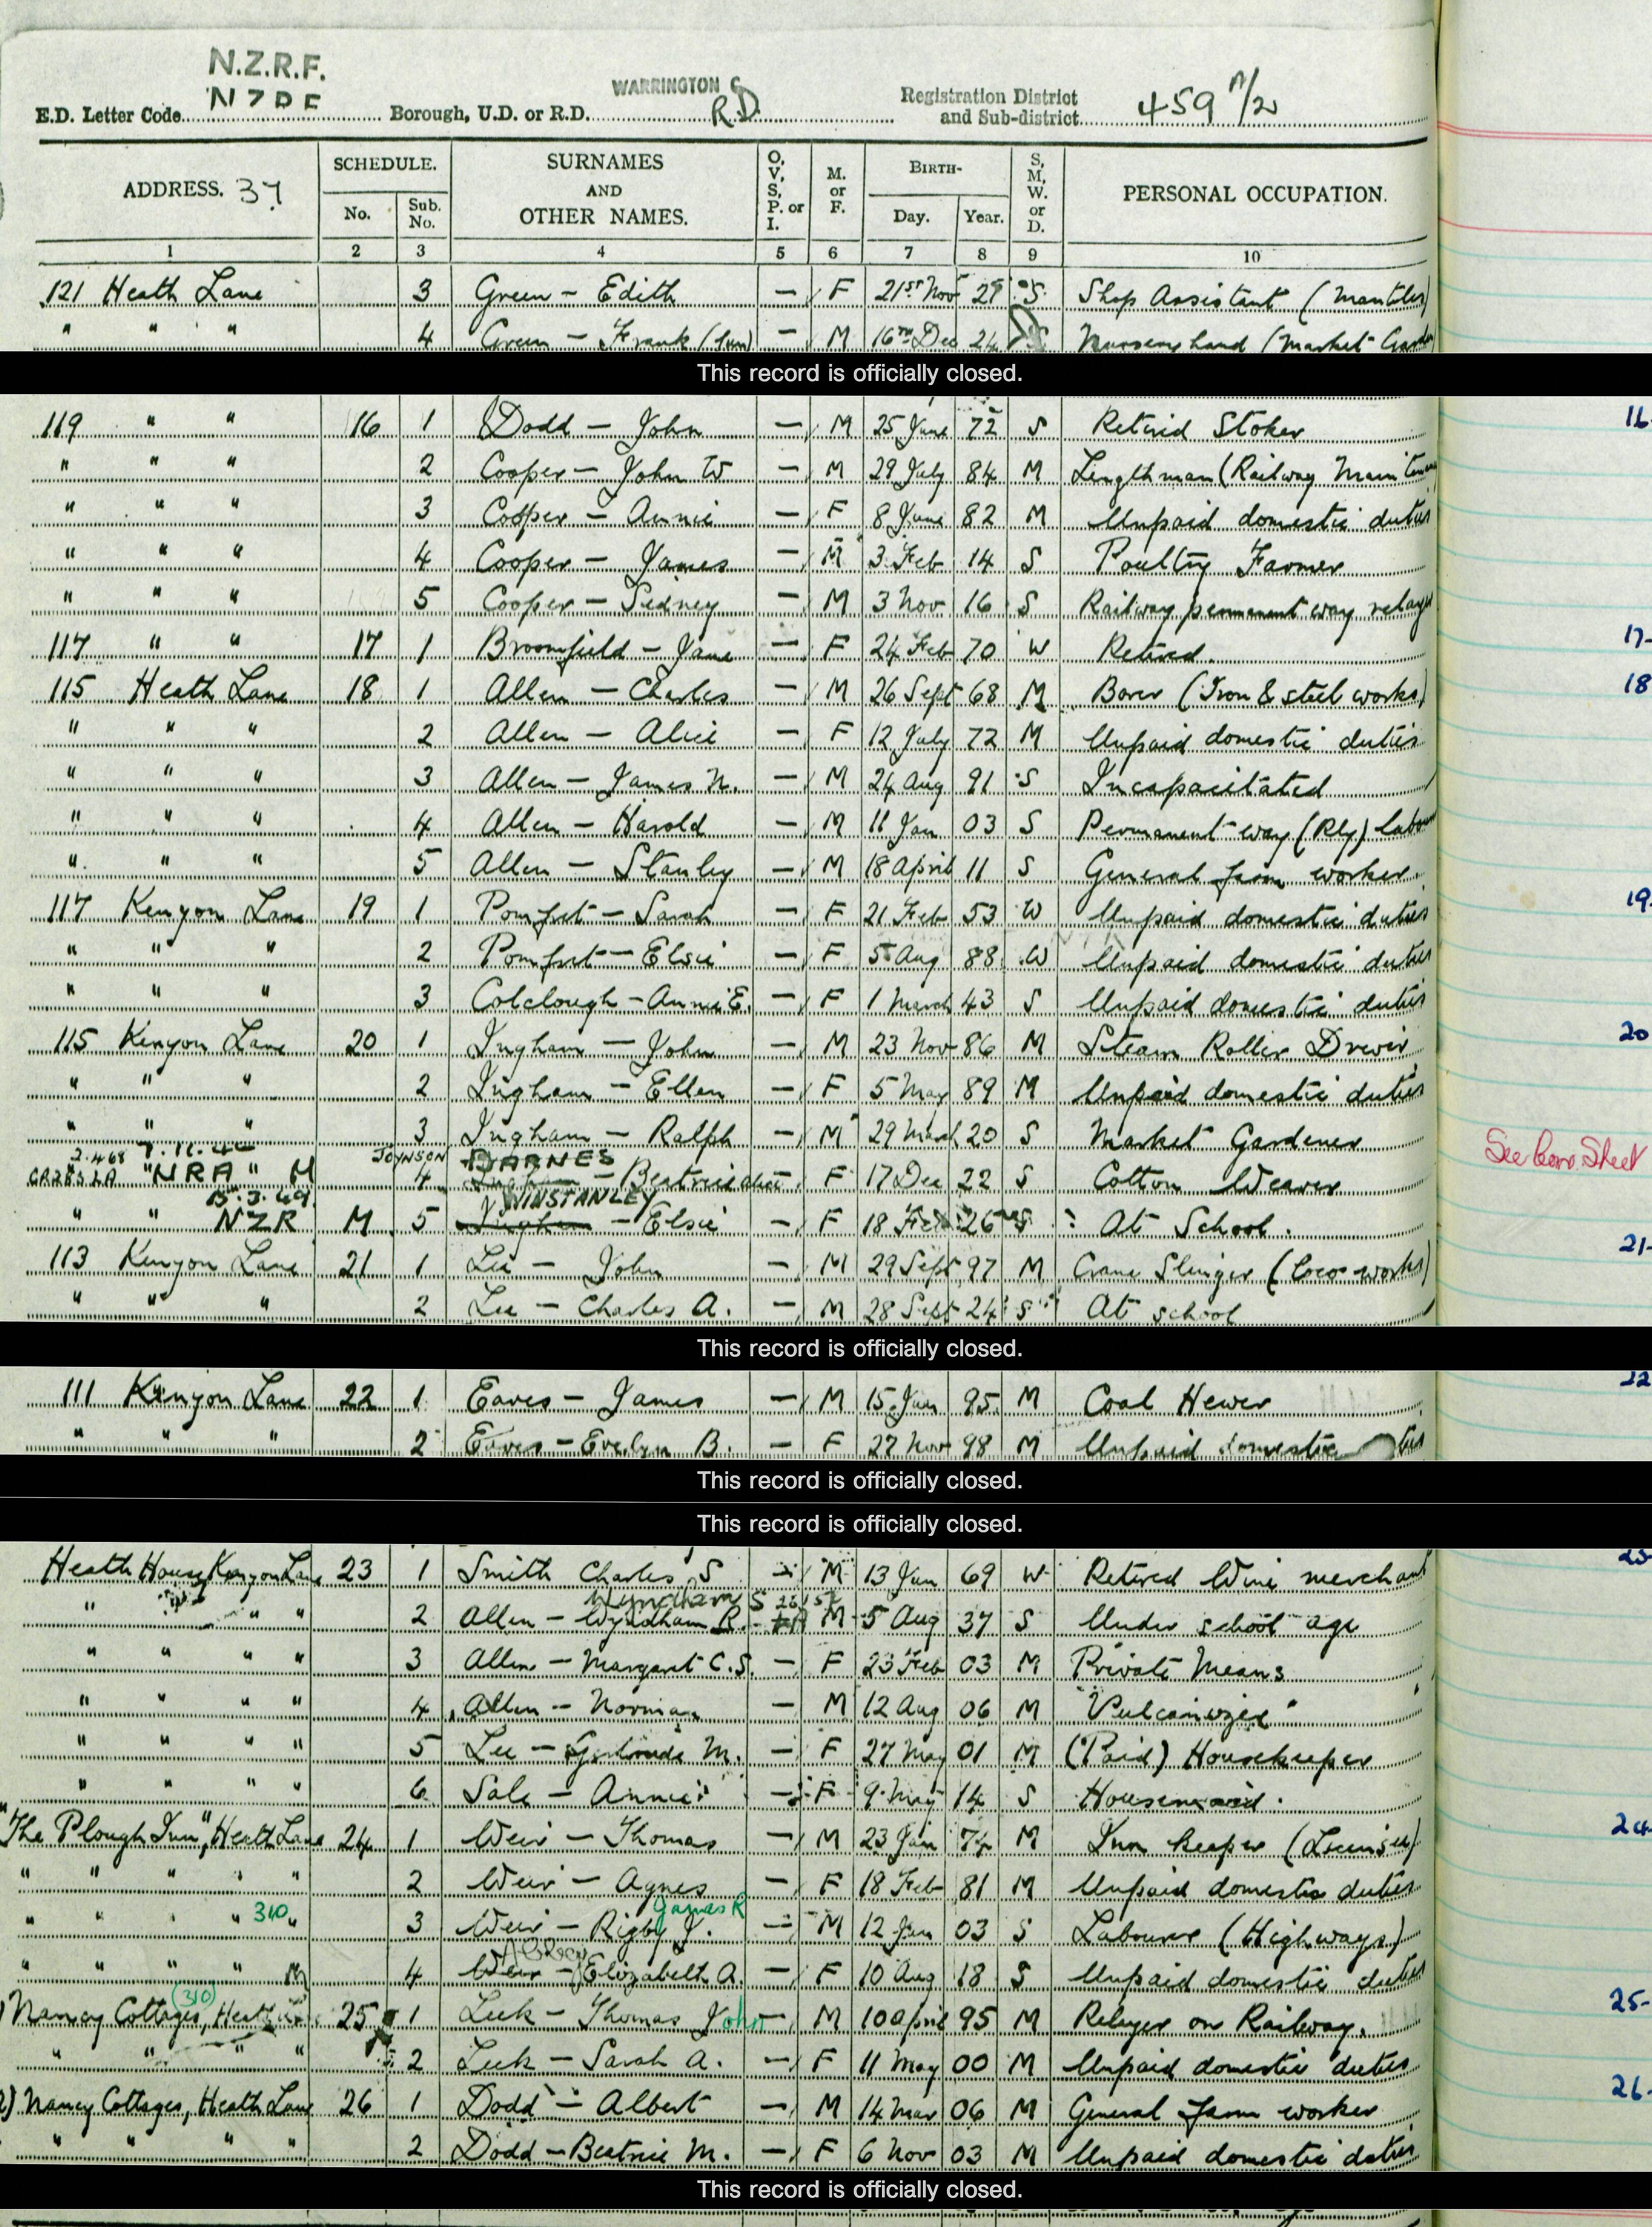 N.Z.R.F.
E.D. Letter Code N Z R F Borough, U.D. or R.D. WARRINGTON R.D. Registration District and Sub-district 459 1/2
ADDRESS. 37 SCHEDULE. No. Sub. No. SURNAMES AND OTHER NAMES. O, V, S, P. or I. M. or F. BIRTH- Day. Year. S, M, W. or D. PERSONAL OCCUPATION.
1 2 3 4 5 6 7 8 9 10
121 Heath Lane 3 Green - Edith — F 21st Nov S Shop Assistant (Mantles)
" " " 4 Green - Frank (Jun) — M 16th Dec 24 Nursery hand (Market
This record is officially closed.
119 " " 16 1 Dodd - John — M 25 June 72 S Retired Stoker 16
" " " 2 Cooper - John W — M 29 July 84 M Lengthman (Railway
" " " 3 Cooper - Annie — F 8 June 82 M Unpaid domestic duties
" " " 4 Cooper - James — M 3 Feb 14 S Poultry Farmer
" " " 5 Cooper - Sidney — M 3 Nov 16 S Railway permanent way
117 " " 17 1 Broomfield - Jane — F 24 Feb 70 W Retired. 17
115 Heath Lane 18 1 Allen - Charles — M 26 Sept 68 M Borer (Iron & steel works) 18
" " " 2 Allen - Alice — F 12 July 72 M Unpaid domestic duties
" " " 3 Allen - James N. — M 24 Aug 91 S Incapacitated
" " " 4 Allen - Harold — M 11 Jan 03 S Permanent way (Rly)
" " " 5 Allen - Stanley — M 18 April 11 S General farm worker.
117 Kenyon Lane 19 1 Pomfret - Sarah — F 21 Feb 53 W Unpaid domestic duties 19
" " " 2 Pomfret - Elsie — F 5 Aug 88 W Unpaid domestic duties
" " " 3 Colclough - Annie E. — F 1 March 43 S Unpaid domestic duties
115 Kenyon Lane 20 1 Ingham - John — M 23 Nov 86 M Steam Roller Driver 20
" " " 2 Ingham - Ellen — F 5 May 89 M Unpaid domestic duties
" " " 3 Ingham - Ralph — M 29 March 20 S Market Gardener See Corres. Sheet
7.11.42 JOHNSON BARNES
"NRA" M 4 Ingham - Beatrice Alice F 17 Dec 22 S Cotton Weaver
15.3.49 WINSTANLEY
" " NZR M 5 Ingham - Elsie — F 18 Feb 26 S At School.
113 Kenyon Lane 21 1 Lee - John — M 29 Sept 97 M Crane Slinger (Loco works) 21
" " " 2 Lee - Charles A. — M 28 Sept 24 S At school
This record is officially closed.
111 Kenyon Lane 22 1 Eaves - James — M 15 Jan 95 M Coal Hewer 22
" " " 2 Eaves - Evelyn B. — F 27 Nov 98 M Unpaid domestic
This record is officially closed.
This record is officially closed.
Heath House Kenyon Lane 23 1 Smith Charles S — M 13 Jan 69 W Retired Wine merchant 23
Wyndham S
" " " 2 Allen - Wyndham R. M 5 Aug 37 S Under school age
" " " " 3 Allen - Margaret C.S. — F 23 Feb 03 M Private Means
" " " " 4 Allen - Norman — M 12 Aug 06 M Vulcanizer
" " " " 5 Lee - Gertrude M. — F 27 May 01 M (Paid) Housekeeper
" " " " 6 Sale - Annie — F 9 May 14 S Housemaid.
"The Plough Inn", Heath Lane 24 1 Weir - Thomas — M 23 Jan 74 M Inn keeper (Licensee) 24
" " " " " 2 Weir - Agnes — F 18 Feb 81 M Unpaid domestic duties
James R
" " " " 310 " 3 Weir - Rigby J. — M 12 Jan 03 S Labourer (Highways)
" " " " M 4 Weir - Elizabeth A. — F 10 Aug 18 S Unpaid domestic duties
(310)
Nancy Cottages, Heath 25 1 Leek - Thomas John — M 10 April 95 M Relayer on Railway. 25
" " " 2 Leek - Sarah A. — F 11 May 00 M Unpaid domestic duties
2) Nancy Cottages, Heath Lane 26 1 Dodd - Albert — M 14 Mar 06 M General farm worker 26
" " " " 2 Dodd - Beatrice M. — F 6 Nov 03 M Unpaid domestic duties
This record is officially closed.